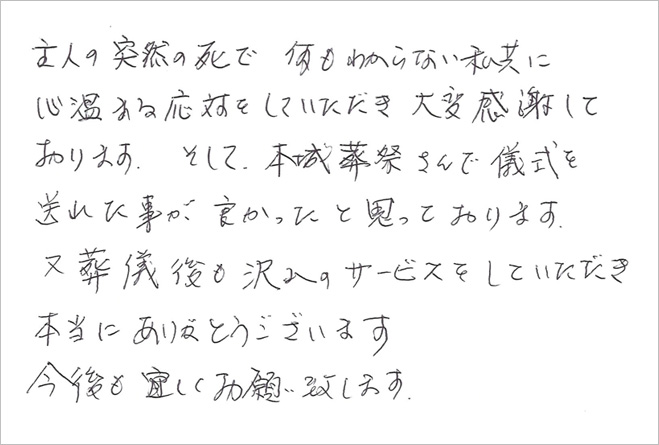 主人の突然の死で 何もわからない私共に
心温まる応対をしていただき 大変感謝して
おります。 そして、本城葬祭さんで儀式を
送れた事が 良かったと思っております。
又葬儀後も沢山のサービスをしていただき
本当にありがとうございます
今後も宜しくお願い致します。